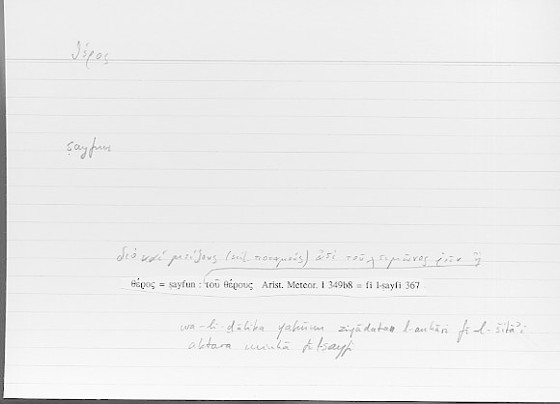 θέρος
ṣayfun
διὸ καὶ μείζους (sc. ποταμοὺς) ἀεὶ τοῦ χειμῶνος ῥεῖν ἢ
θέρος = ṣayfun : τοῦ θέρους Arist. Meteor. I 349b8 = fī l-ṣayfi 367
wa-li-ḏālika yakūnu ziyādatan l-anhāri fī-l-šitāʾi
akṯara minhā fī l-ṣayfi